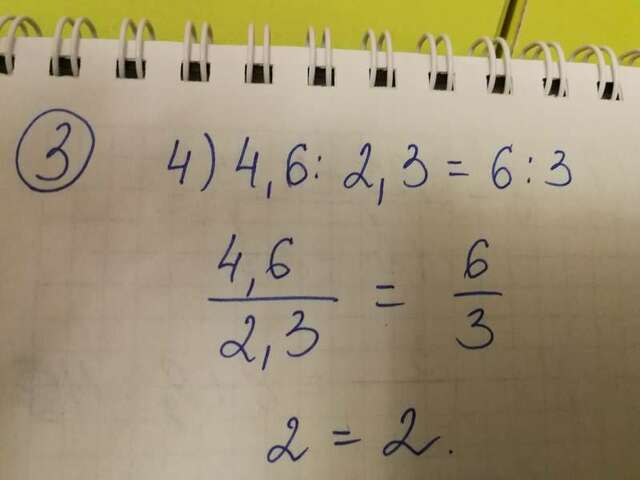 3 4) 4,6 : 2,3 = 6 : 3
4,6 / 2,3 = 6 / 3
2 = 2.